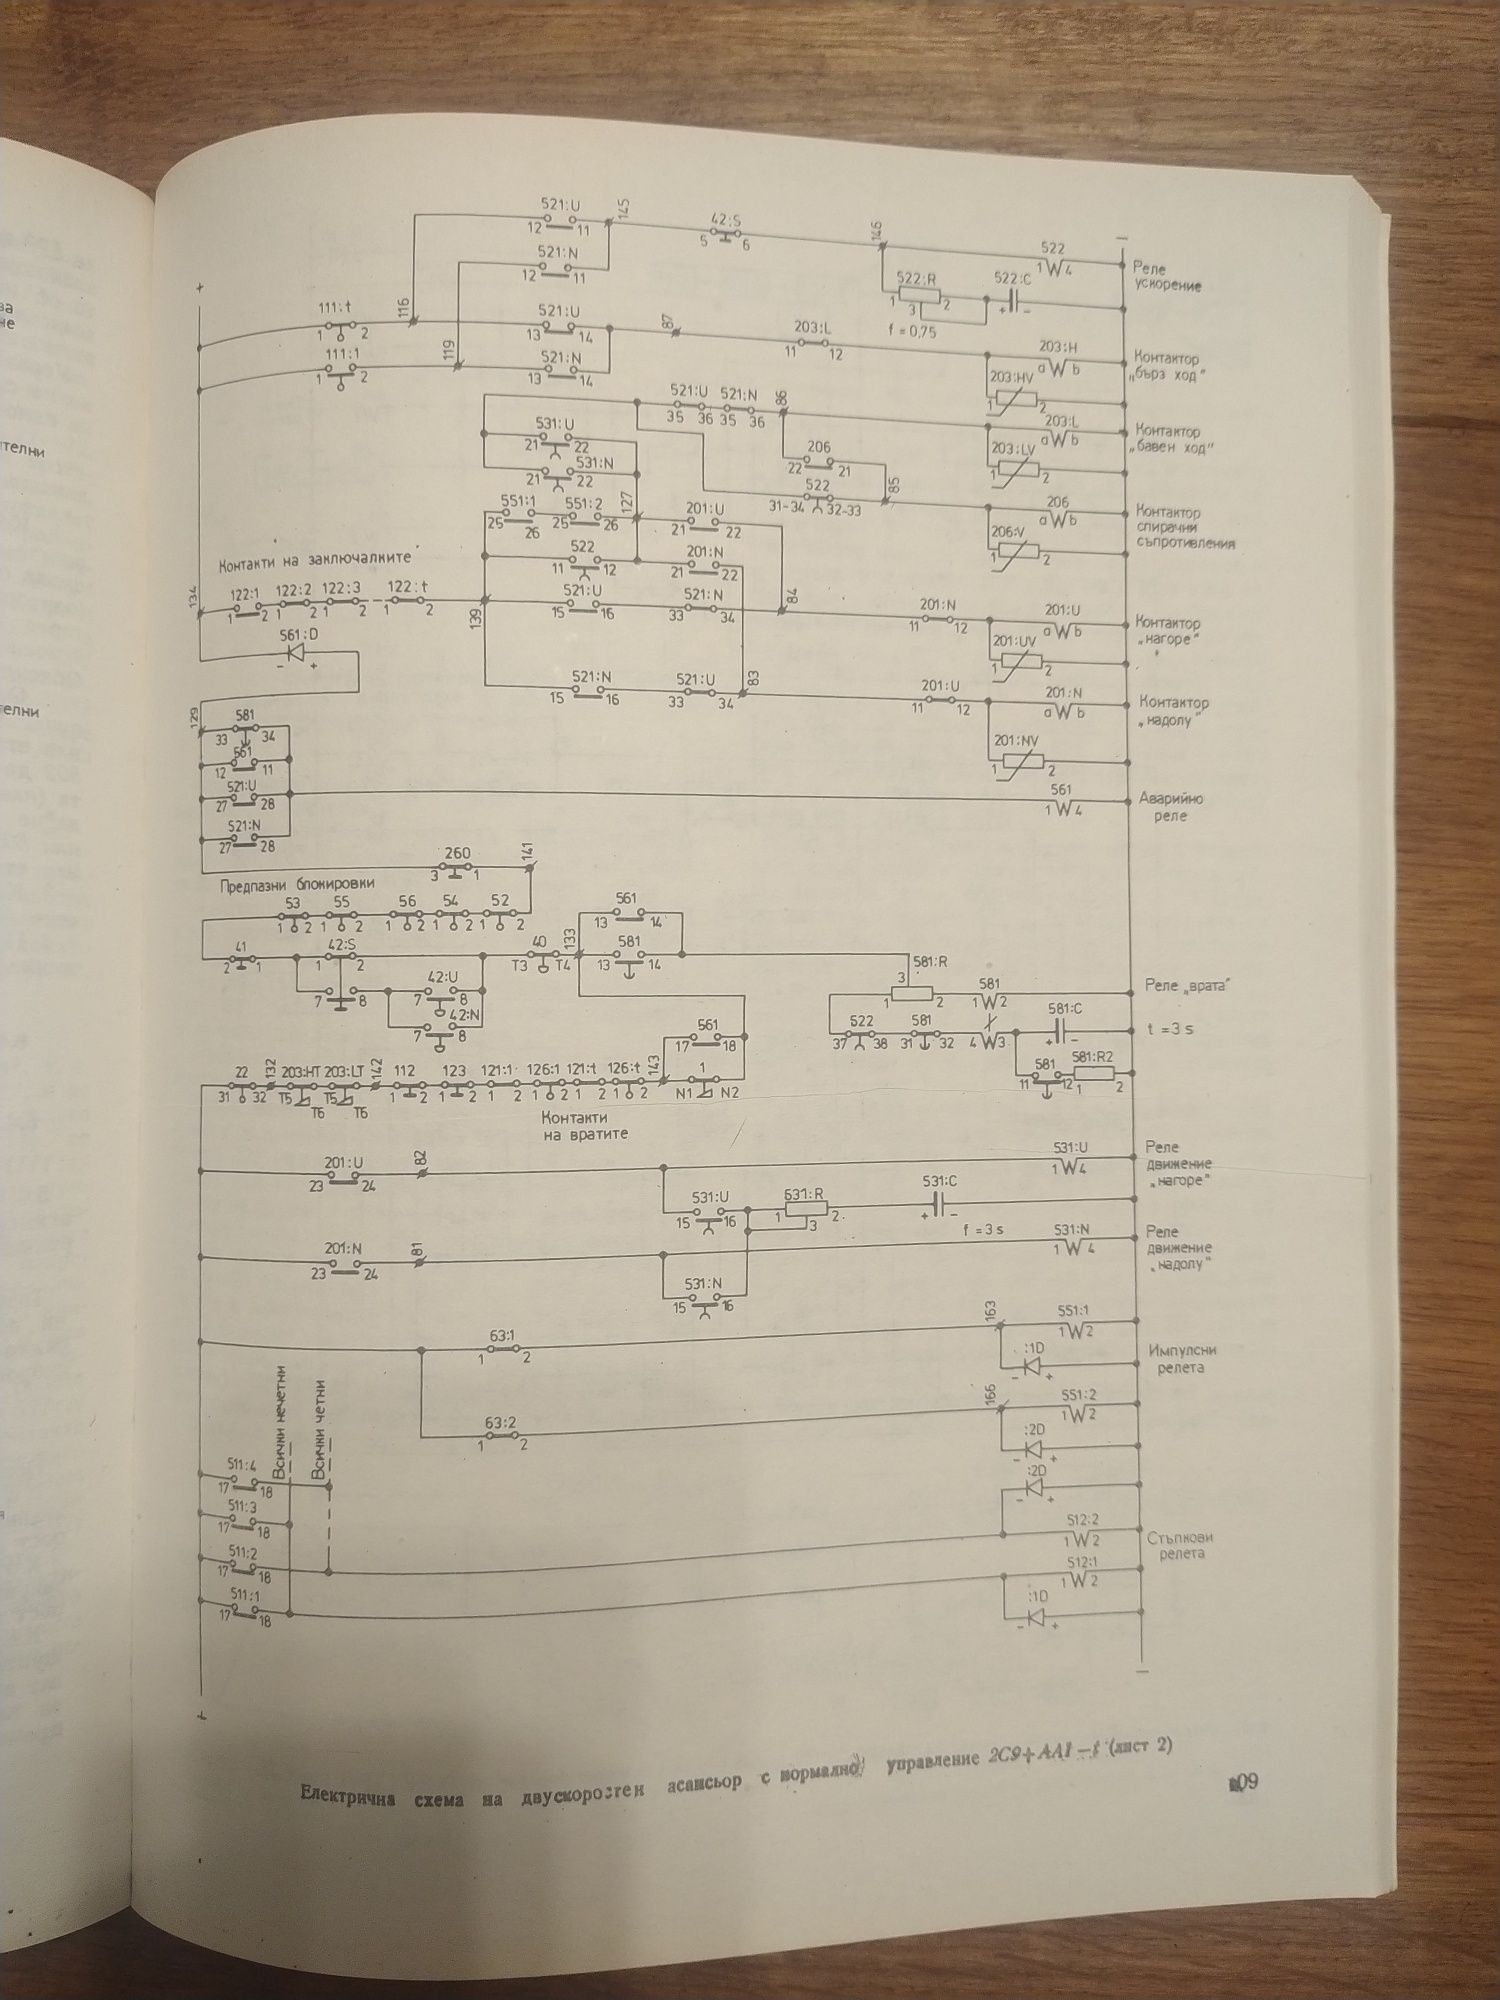 521:U
12 11
145
42:S
5 6
146
522
1 4
Реле
ускорение
521:N
12 11
522:R
1 2
3
522:C
+ −
f = 0,75
111:t
1 2
116
521:U
13 14
87
203:L
11 12
203:H
a b
Контактор
„бърз ход"
111:1
1 2
119
521:N
13 14
203:HV
1 2
521:U 521:N
35 36 35 36
86
203:L
a b
Контактор
„бавен ход"
531:U
21 22
206
22 21
203:LV
1 2
531:N
21 22
522
31-34 32-33
85
206
a b
Контактор
спирачни
съпротивления
551:1
25 26
551:2
25 26
127
201:U
21 22
206:V
1 2
522
11 12
201:N
21 22
Контакти на заключалките
134
122:1 122:2 122:3 122:t
1 2 1 2 1 2 1 2
139
521:U
15 16
521:N
33 34
84
201:N
11 12
201:U
a b
Контактор
„нагоре"
561:D
− +
201:UV
1 2
521:N
15 16
521:U
33 34
83
201:U
11 12
201:N
a b
Контактор
„надолу"
129
581
33 34
201:NV
1 2
561
12 11
521:U
27 28
561
1 4
Аварийно
реле
521:N
27 28
260
3 1
141
Предпазни блокировки
53 55 56 54 52
1 2 1 2 1 2 1 2 1 2
561
13 14
41
2 1
42:S
1 2
40
T3 T4
133
581
13 14
581:R
3
1 2
581
1 2
Реле „врата"
7 8
42:U
7 8
42:N
7 8
522
37 38
581
31 32
4 3
581:C
+ −
t = 3 s
561
17 18
581
11 12
581:R2
1 2
22
31 32
132
203:HT 203:LT
T5 T6 T5 T6
142
112 123 121:1 126:1 121:t 126:t
1 2 1 2 1 2 1 2 1 2 1 2
143
1
N1 N2
Контакти
на вратите
201:U
23 24
82
531:U
1 4
Реле
движение
„нагоре"
531:U
15 16
531:R
1 2
3
531:C
+ −
f = 3 s
201:N
23 24
81
531:N
1 4
Реле
движение
„надолу"
531:N
15 16
63:1
1 2
163
551:1
1 2
:1D
− +
Импулсни
релета
63:2
1 2
166
551:2
1 2
:2D
− +
Всички нечетни
Всички четни
511:4
17 18
:2D
− +
511:3
17 18
512:2
1 2
Стъпкови
релета
511:2
17 18
512:1
1 2
511:1
17 18
:1D
− +
Електрична схема на двускоростен асансьор с нормално управление 2C9+AA1−t (лист 2)
09